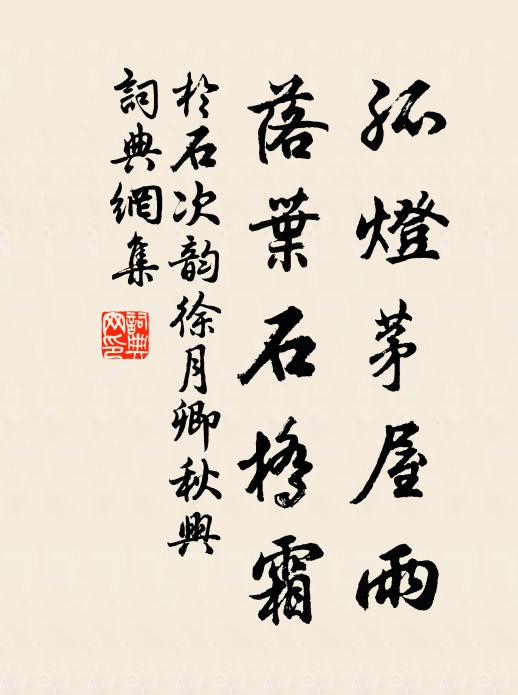 孤燈茅屋雨
落葉石橋霜
於石次韵徐月卿秋興
詞典網集
詞典網印